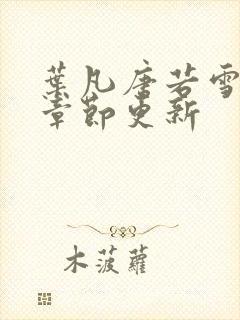 葉凡唐若雪
章節更新
木菠蘿